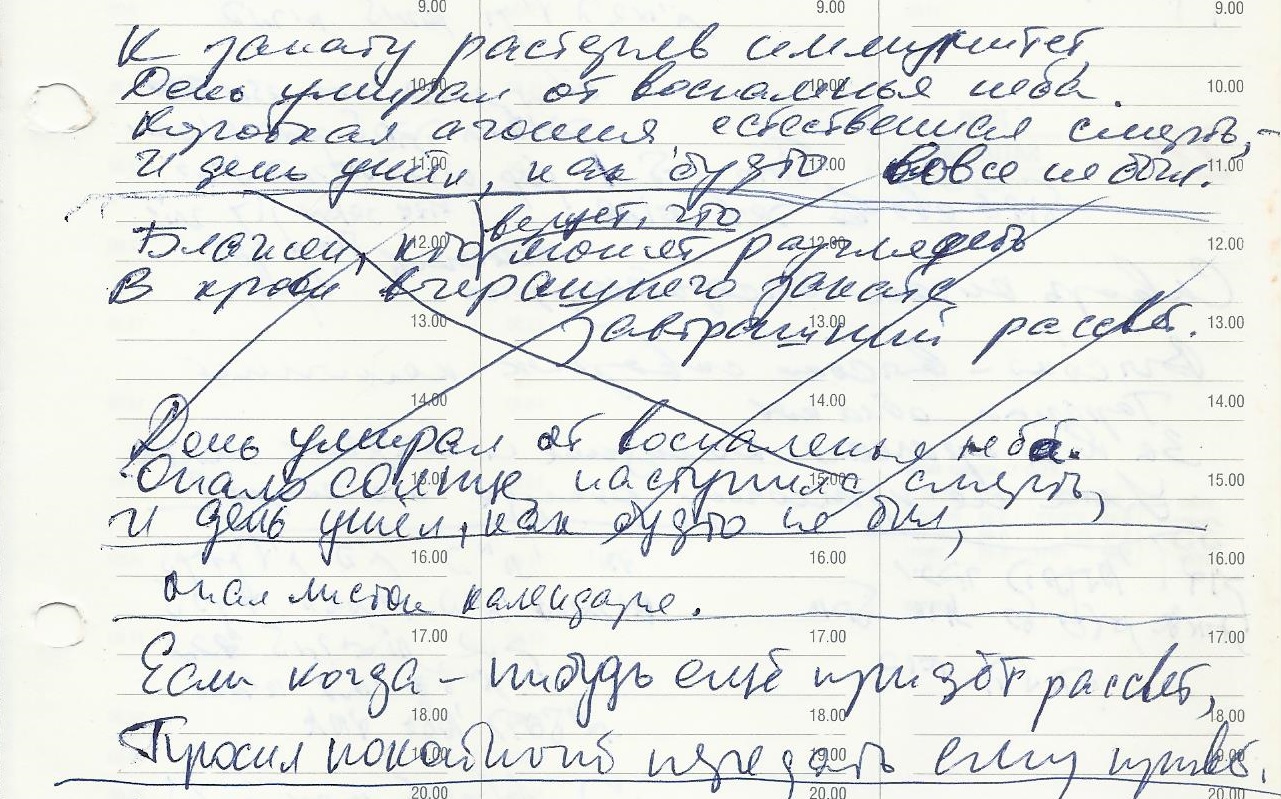 9.00 9.00 9.00
К закату растеряв иммунитет,
10.00 10.00 10.00
День умирал от воспаленья неба.
Короткая агония естественная смерть, -
11.00 11.00 11.00
И день ушёл, как будто вовсе не был.
верует, что
12.00 12.00 12.00
Блажен, кто может разглядеть
В крови вчерашнего заката
13.00 13.00 13.00
завтрашний рассвет.
14.00 14.00 14.00
День умирал от воспаленья неба.
15.00 15.00 15.00
Опало солнце, наступила смерть,
И день ушёл, как будто не был,
16.00 16.00 16.00
опал листок календаря.
17.00 17.00 17.00
Если когда-нибудь ещё придёт рассвет,
18.00 18.00 18.00
Просил покойный передать ему привет.
19.00 19.00 19.00
20.00 20.00 20.00